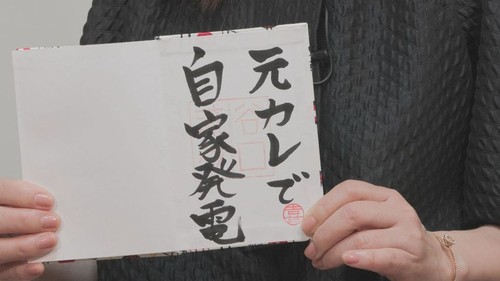 元カレで
自家発電